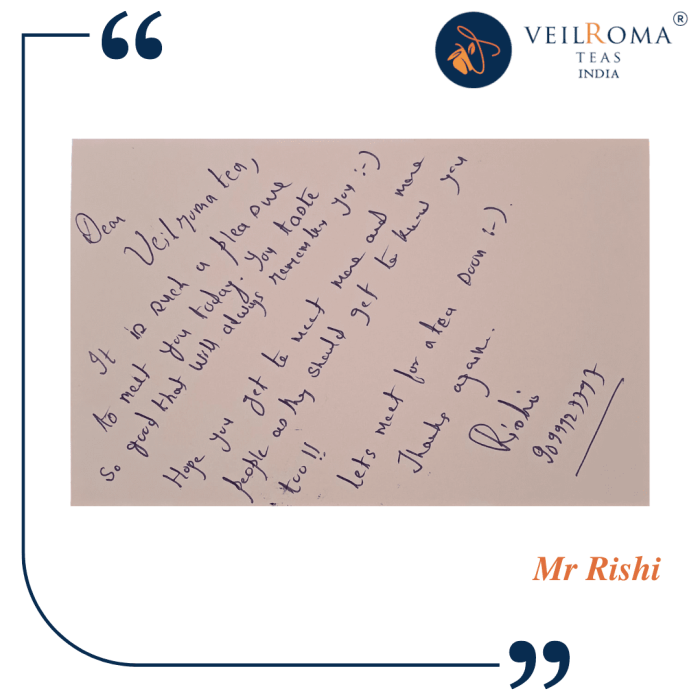 VEILROMA®
TEAS
INDIA
Dear
Veilroma tea,
It is such a pleasure
to meet you today. You taste
so good that will always remember you :-)
Hope you get to meet more and more
people as they should get to know you
too!!
Lets meet for a tea soon :-).
Thanks again.
Rishi
Mr Rishi